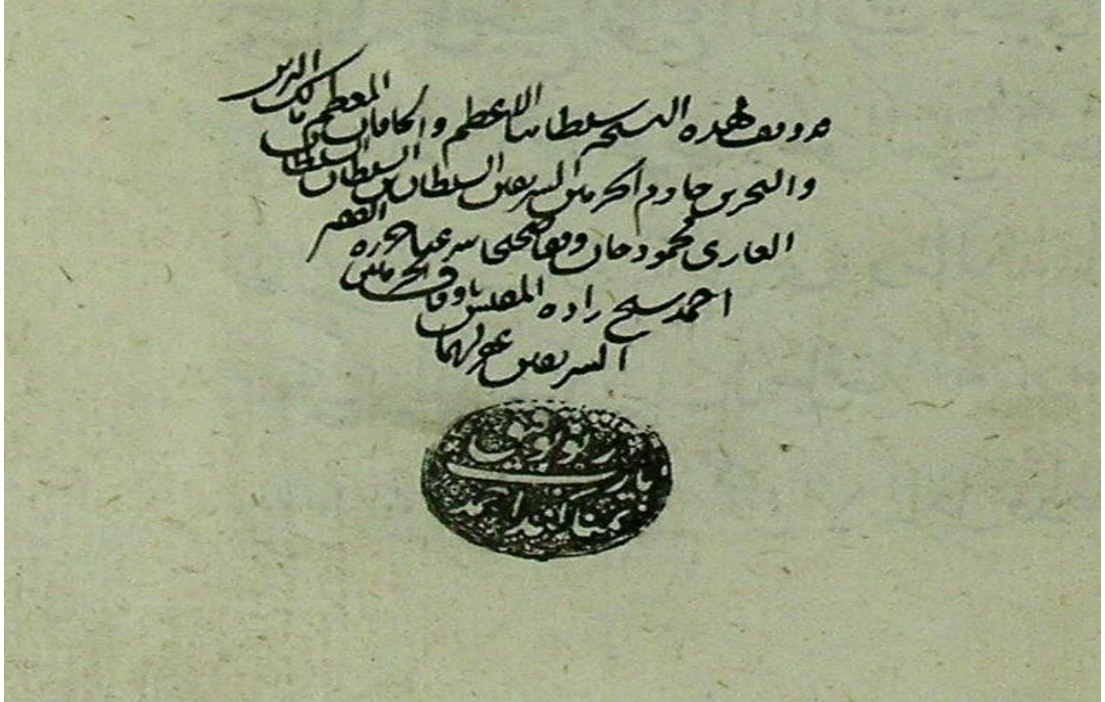 قد وقف هذه النسخة سلطاننا الاعظم والخاقان المعظم مالك البرين
والبحرين خادم الحرمين الشريفين السلطان بن السلطان السلطان
الغازى محمود خان وقفا صحيحا شرعيا حرره الفقير
احمد شيخ زاده المفتش باوقاف الحرمين
الشريفين غفر لهما
يارب
احمد